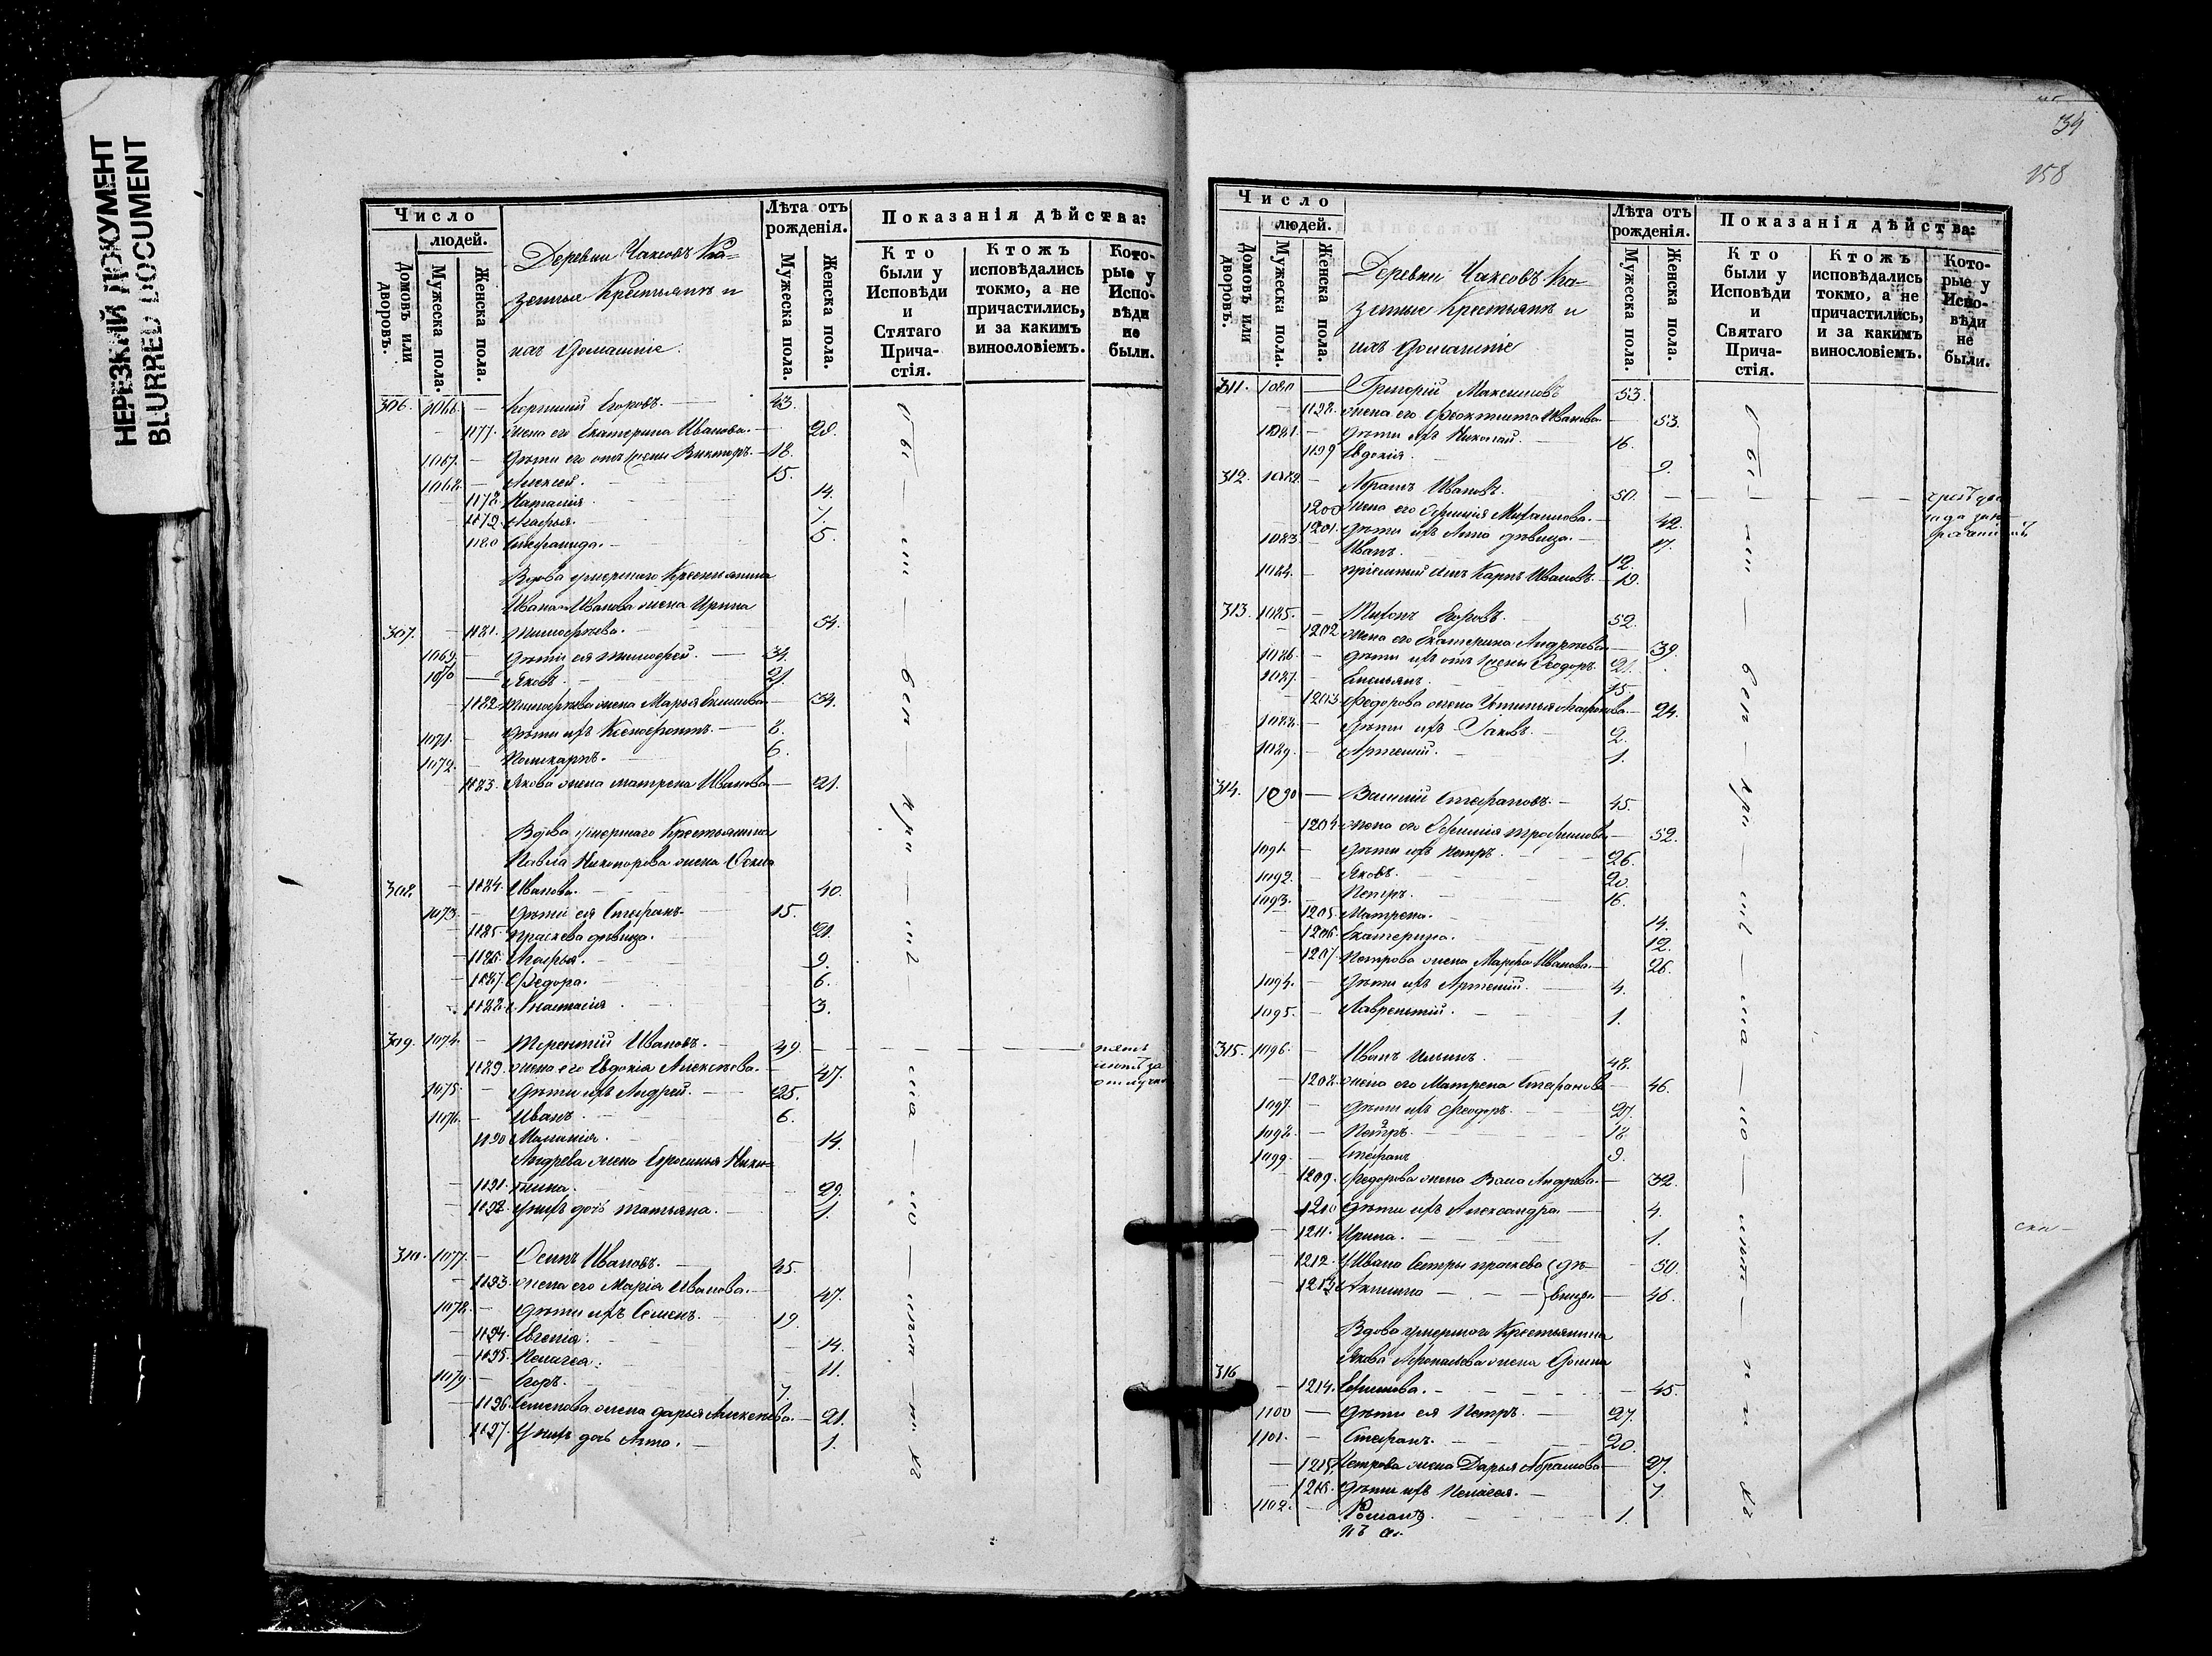 НЕРЕЗКИЙ ДОКУМЕНТ
BLURRED DOCUMENT
Число
людей.
Домовъ или дворовъ.
Мужеска пола.
Женска пола.
Деревни Чаксовъ Ка-
зенные Крестьянъ и
ихъ домашніе.
Лѣта отъ рожденія.
Мужеска пола.
Женска пола.
Показанія дѣйства:
Кто были у Исповѣди и Стятаго Прича-стія.
Ктожъ исповѣдались токмо, а не причастились, и за какимъ винословіемъ.
Кото-рые у Испо-вѣди не были.
306. 1066. — Егоровъ. 43.
1177. жена его Екатерина Иванова. 28.
1067. — дѣти его отъ жены Викторъ. 18.
1068. — Алексей. 15.
1178. Наталія 14.
1179. Агафья. 7.
1180 Степанида. 5.
Вдова умершаго Крестьянина
Ивана Иванова жена Ирина
307. — 1181. Тимофѣева. 54.
1069. — дѣти ея Тимофей. 34.
1070 — Яковъ. 21.
1182. Тимофѣева жена Марья 34.
1071. — дѣти ихъ Ксенофонтъ. 8.
1072. — Поликарпъ. 6.
1183. Якова жена Матрена Иванова 21.
Вдова умершаго Крестьянина
Павла Никифорова жена
308. — 1184. Иванова. 40.
1073. — дѣти ея Стефанъ. 15.
1185. Праскева дѣвица. 21.
1186. Агафья. 9.
1187. Федора. 6.
1188. Анастасія. 3.
309. 1074. — Терентій Ивановъ. 49.
1189. жена его Евдокія Алексѣева. 47.
1075. — дѣти ихъ Андрей. 25.
1076. — Иванъ. 6.
1190 Маланія. 14.
Андрева жена Ефросинья Ники-
1191. тина. 29.
1192. у нихъ дочь Татьяна. 1.
310. 1077. — Осипъ Ивановъ. 45.
1193. жена его Марія Иванова. 47.
1078. — дѣти ихъ Семенъ. 19.
1194. Евгенія. 14.
1195. Пелагея. 11.
1079. — Егоръ. 7.
1196. Семенова жена Дарья Алексѣева. 21.
1197. У нихъ дочь Анна. 1.
34
158
Число
людей.
Домовъ или дворовъ.
Мужеска пола.
Женска пола.
Деревни Чаксовъ Ка-
зенные Крестьянъ и
ихъ домашніе
Лѣта отъ рожденія.
Мужеска пола.
Женска пола.
Показанія дѣйства:
Кто были у Исповѣди и Святаго Прича-стія.
Ктожъ исповѣдались токмо, а не причастились, и за какимъ винословіемъ.
Кото-рые у Испо-вѣди не были.
311. 1080 — Григорій Максимовъ 53.
1198. жена его Феоктиста Иванова 53.
1081. — дѣти ихъ Николай. 16.
1199 Евдокія. 9.
312. 1082. — Абрамъ Ивановъ. 50.
1200 жена его Михаилова. 42.
1201. дѣти ихъ Анна дѣвица. 17.
1083 Иванъ. 12.
1084. — пріемный сынъ Карпъ Ивановъ. 19.
313. 1085. — Егоровъ. 52.
1202 жена его Екатерина Андреева 39.
1086. — дѣти ихъ отъ жены Феодоръ. 21.
1087. — Емельянъ. 15.
1203 Федорова жена Устинья Агафонова. 24.
1088. — дѣти ихъ Іаковъ. 2.
1089. — Артемий. 1.
314. 1090 — Василій Стефановъ. 45.
1204 жена его Ефимія Трофимова 52.
1091. — дѣти ихъ Петръ. 26.
1092. — Яковъ. 20.
1093. — Петръ. 16.
1205. Матрена. 14.
1206. Екатерина. 12.
1207. Петрова жена Марфа Иванова. 26.
1094. — дѣти ихъ Артемий. 4.
1095. — Лаврентій. 1.
315. 1096. — Иванъ Ильинъ. 48.
1208. жена его Матрена Стефанова 46.
1097. — дѣти ихъ Феодоръ. 27.
1098. — Петръ. 18.
1099. — Стефанъ 9.
1209. Федорова жена Васа Андрева. 32.
1210 дѣти ихъ Александра. 4.
1211. Ирина. 1.
1212. У Ивана сестры Праскева дѣ- 50.
1213 Акилина вицы 46.
Вдова умершаго Крестьянина
Якова Афонасьева жена Домна
316 — 1214. Ефимова. 45.
1100 — дѣти ея Петръ. 27.
1101. — Стефанъ. 20.
1215. Петрова жена Дарья Абрамова 27.
1216. дѣти ихъ Пелагея. 7.
1102. — Романъ. 1.